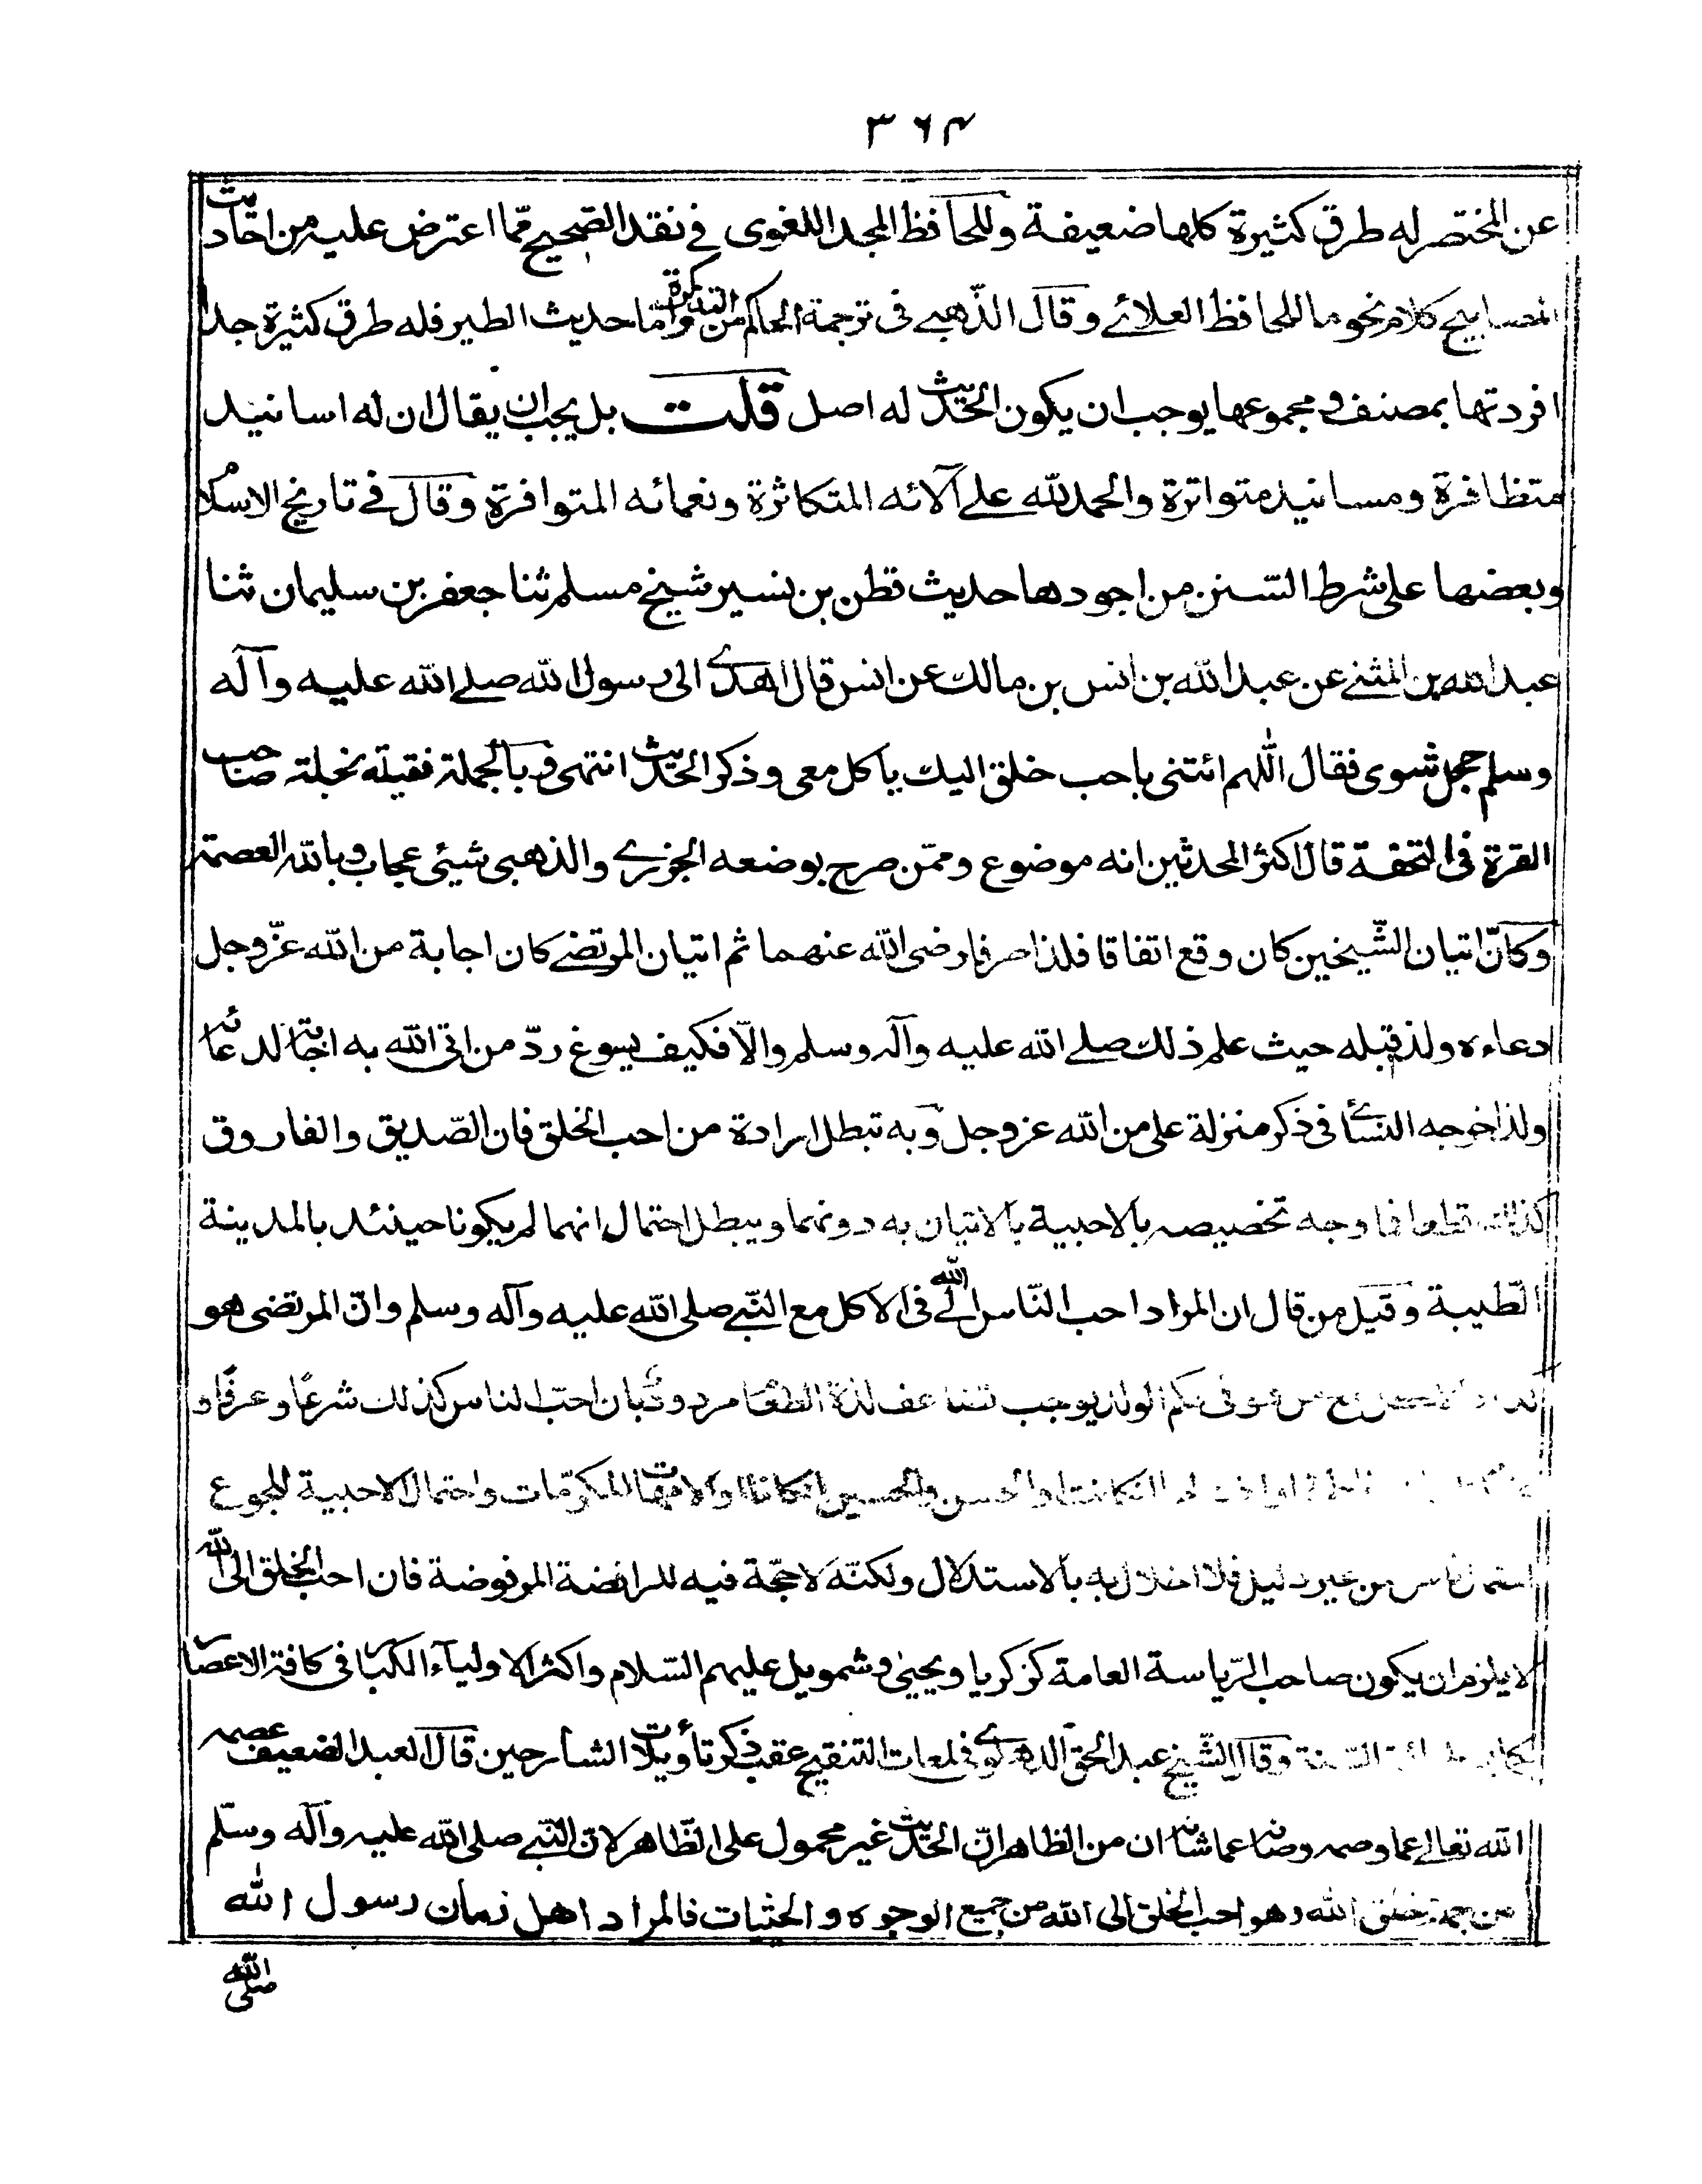 ٣٦٤
عن المختصر له طرق كثيرة كلها ضعيفة وللحافظ المجد اللغوى فى نقد الصحيح مما اعترض عليه من احاديث
المصابيح كلام نحو ما للحافظ العلائے وقال الذهبے فى ترجمة الحاكم من التذكرة واما حديث الطير فله طرق كثيرة جدا
افردتها بمصنف ومجموعها يوجب ان يكون الحديث له اصل قلت بل يجب ان يقال ان له اسانيد
متظافرة ومسانيد متواترة والحمد لله على آلائه المتكاثرة ونعمائه المتوافرة وقال فى تاريخ الاسلام
وبعضها على شرط السنن من اجودها حديث قطن بن نسير شيخ مسلم ثنا جعفر بن سليمان ثنا
عبد الله بن المثنے عن عبد الله بن انس بن مالك عن انس قال اهدے الى رسول الله صلے الله عليه وآله
وسلم حجل شوى فقال اللهم ائتنى باحب خلقك اليك ياكل معى وذكر الحديث انتهى وبالجملة فقيلة نجلة صاحب
القرة فى التحفة قال اكثر المحدثين انه موضوع وممن صرح بوضعه الجزرے والذهبى شيئ عجاب وبالله العصمة
وكان اتيان الشيخين كان وقع اتفاقا فلذا صرفا رضى الله عنهما ثم اتيان المرتضے كان اجابة من الله عز وجل
دعاءه ولذا قبله حيث علم ذلك صلے الله عليه وآله وسلم والا فكيف يسوغ رد من اتى الله به اجابة لدعائه
ولذا اخرجه النسائے فى ذكر منزلة على من الله عز وجل وبه تبطل ارادة من احب الخلق فان الصديق والفاروق
كذلك قطعا فما وجه تخصيصه بالاحبية بالاتيان به دونهما ويبطل احتمال انهما لم يكونا حينئذ بالمدينة
الطيبة وقيل من قال ان المراد احب الناس الے الله فى الاكل مع النبے صلى الله عليه وآله وسلم وان المرتضى هو
فى حكم الولد يوجب تضاعف لذة الطعام مردود بان احب الناس كذلك شرعا وعرفا و
كانت او الحسن والحسين ان كانا او الامهات المكرمات واحتمال الاحبية للمجموع
من غير دليل فلا اخلال به بالاستدلال ولكنه لا حجة فيه للرافضة المرفوضة فان احب الخلق الى الله
لا يلزم ان يكون صاحب الرياسة العامة كزكريا ويحيى وشمويل عليهم السلام واكثر الاولياء الكبار فى كافة الاعصار
السنة وقال الشيخ عبد الحق الدهلوے فى لمعات التنقيح عقب ذكر تأويلات الشارحين قال العبد الضعيف عصمه
الله تعالے عما وصمه وصانه عما شانه ان من الظاهر ان الحديث غير محمول على الظاهر لان النبے صلى الله عليه وآله وسلم
من جملة خلق الله وهو احب الخلق الى الله من جميع الوجوه والحيثيات فالمراد اهل زمان رسول الله
صلى الله